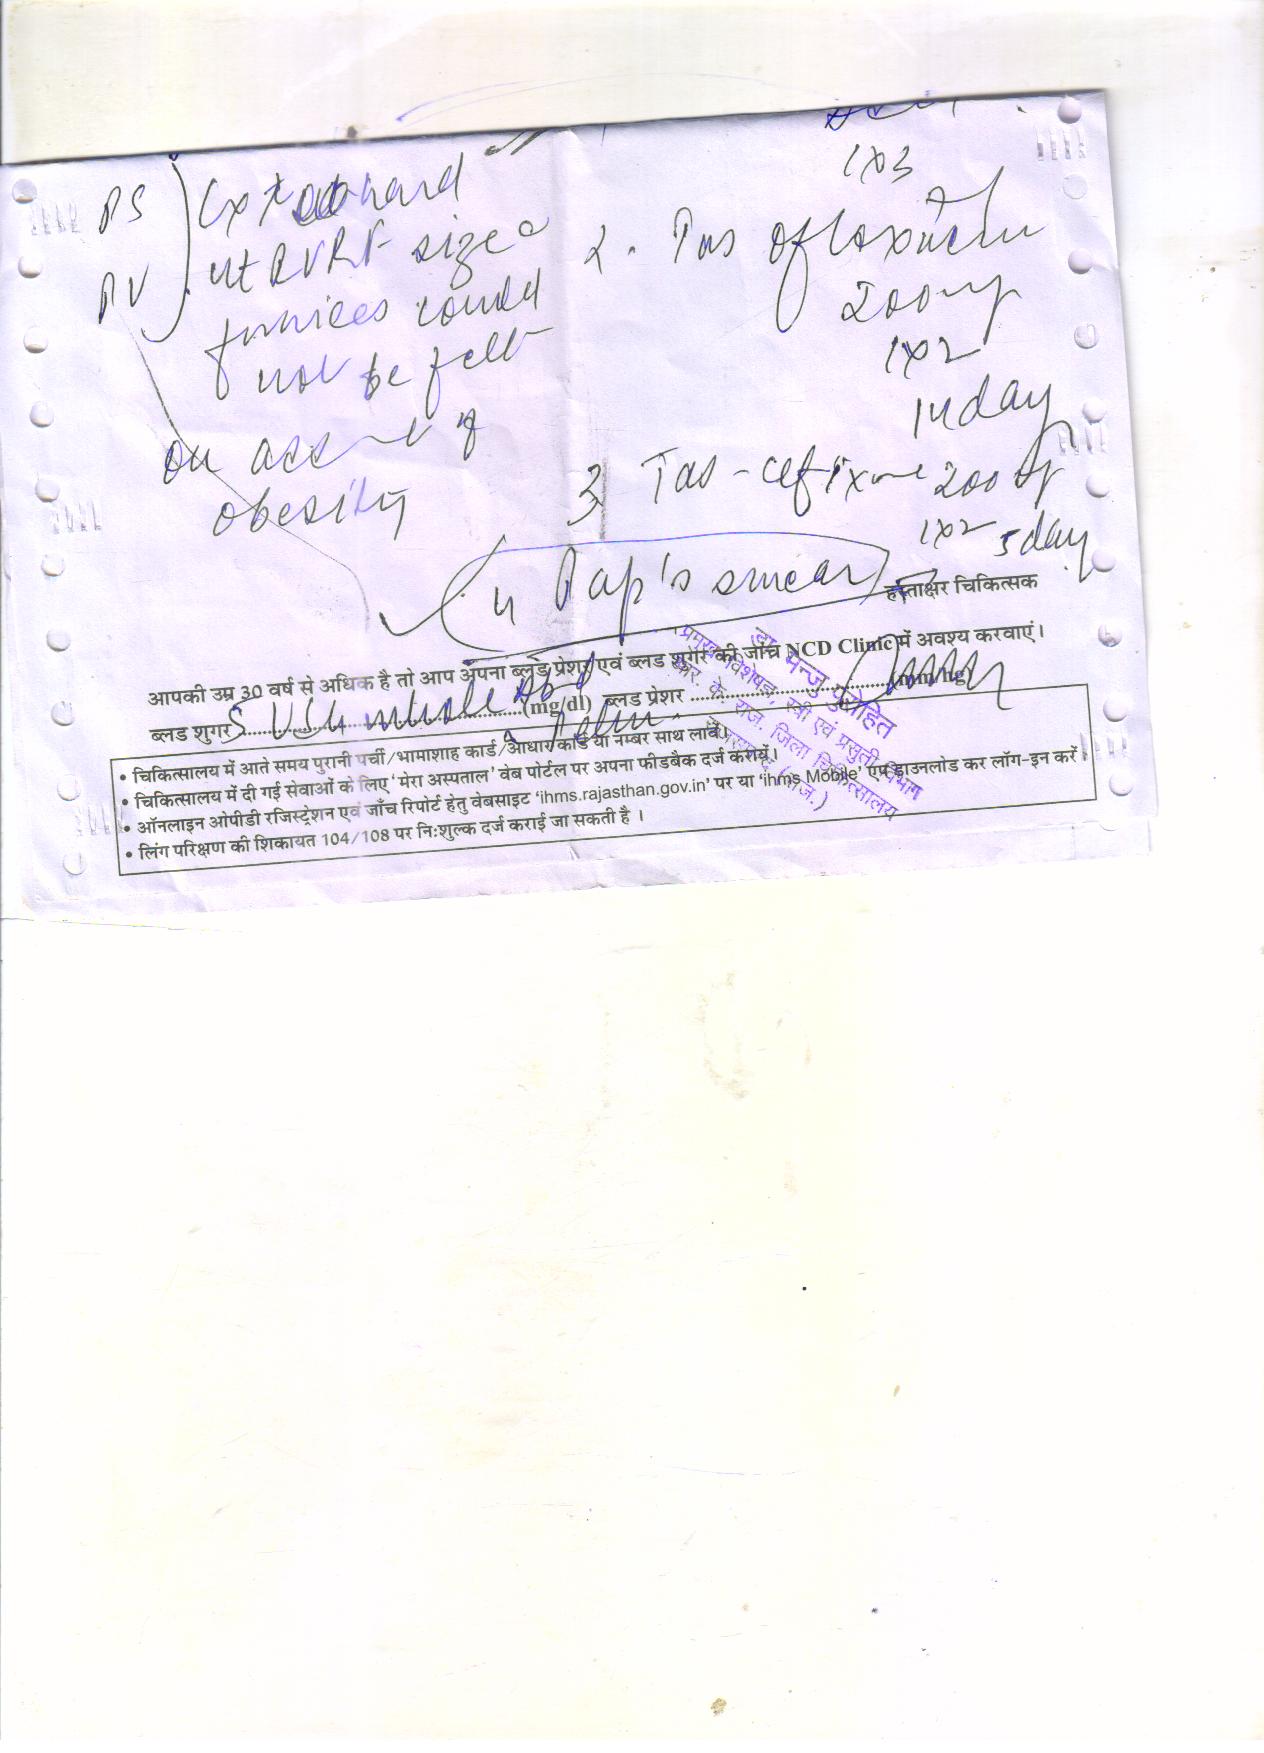 1x3
PS
PV
Cx + hard
ut RVRF size
fornices could
not be felt
on acc of
obesity
2. Tab ofloxacin
200mg
1x2
14 day
3 Tab - cefixime 200
1x2 5 day
4 Pap's smear
हस्ताक्षर चिकित्सक
आपकी उम्र 30 वर्ष से अधिक है तो आप अपना ब्लड प्रेशर एवं ब्लड शुगर की जाँच NCD Clinic में अवश्य करवाएं।
ब्लड शुगर ..................................................(mg/dl) ब्लड प्रेशर ..................................................(mm/hg)
USG whole Abd
Pelvis
डा. मन्जु पुरोहित
प्रमुख विशेषज्ञ, स्त्री एवं प्रसुती विभाग
आर. के. राज. जिला चिकित्सालय
राजसमन्द (राज.)
• चिकित्सालय में आते समय पुरानी पर्ची/भामाशाह कार्ड/आधार कार्ड या नम्बर साथ लावें।
• चिकित्सालय में दी गई सेवाओं के लिए 'मेरा अस्पताल' वेब पोर्टल पर अपना फीडबैक दर्ज करायें।
• ऑनलाइन ओपीडी रजिस्ट्रेशन एवं जाँच रिपोर्ट हेतु वेबसाइट 'ihms.rajasthan.gov.in' पर या 'ihms Mobile' एप डाउनलोड कर लॉग-इन करें।
• लिंग परिक्षण की शिकायत 104/108 पर निःशुल्क दर्ज कराई जा सकती है।